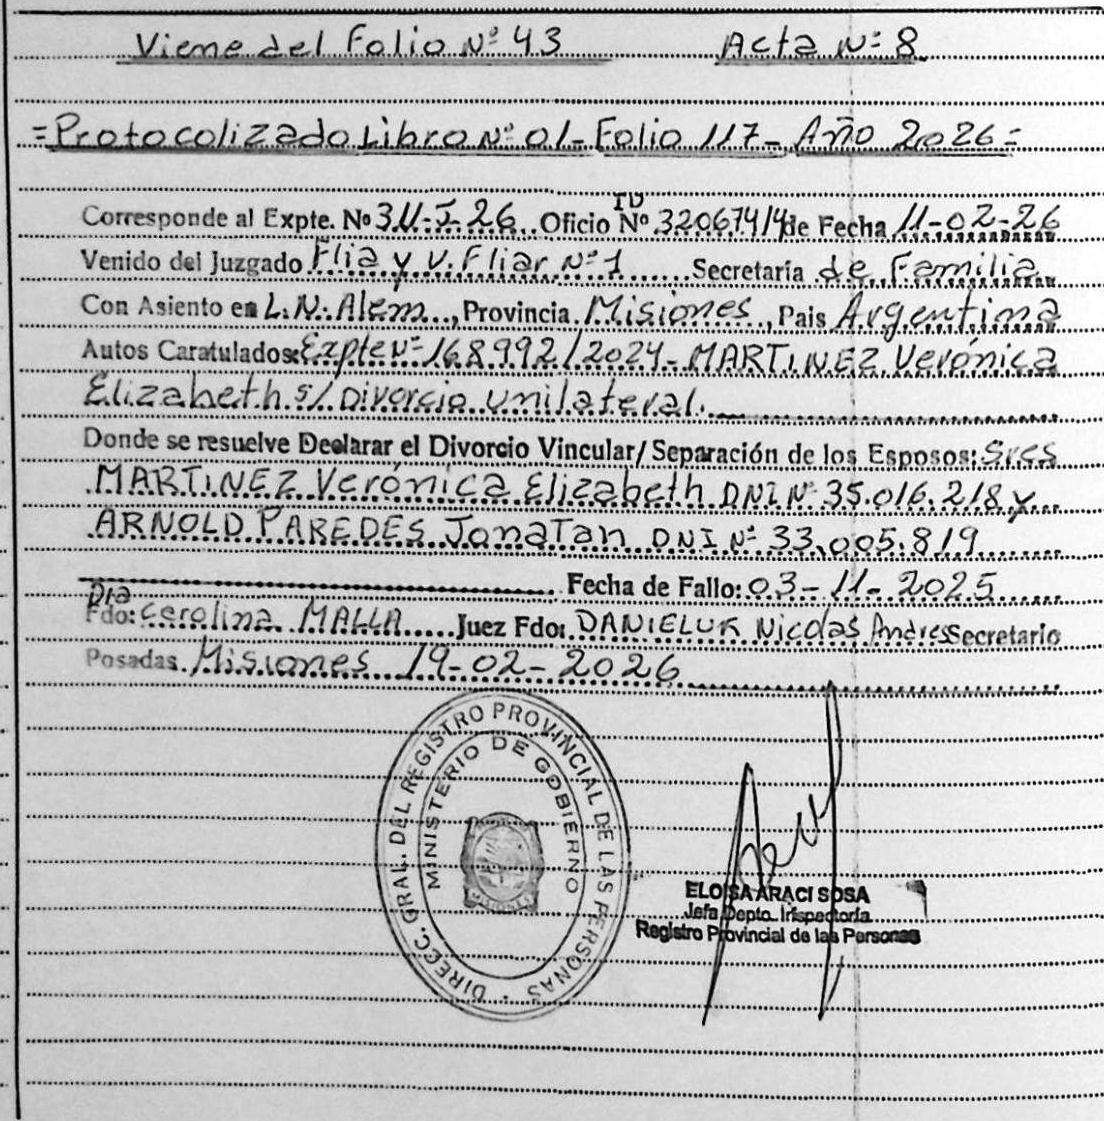 Viene del Folio Nº 43 Acta Nº 8
= Protocolizado Libro Nº 01 - Folio 117 - Año 2026 =
Corresponde al Expte. Nº 311-J-26 Oficio TD Nº 3206741/4 de Fecha 11-02-26
Venido del Juzgado Flia y V. Fliar Nº 1 Secretaria de Familia
Con Asiento en L. N. Alem, Provincia Misiones, Pais Argentina
Autos Caratulados: Expte Nº 168.992/2024 - MARTINEZ Verónica
Elizabeth s/ Divorcio unilateral.
Donde se resuelve Declarar el Divorcio Vincular/ Separación de los Esposos: Sres
MARTINEZ Verónica Elizabeth DNI Nº 35.016.218 y
ARNOLD PAREDES Jonatan DNI Nº 33.005.819
Fecha de Fallo: 03-11-2025
Fdo: Dra Carolina MALLA Juez Fdo: DANIELUK Nicolas Andres Secretario
Posadas. Misiones 19-02-2026
DIRECC. GRAL. DEL REGISTRO PROVINCIAL DE LAS PERSONAS
MINISTERIO DE GOBIERNO
MISIONES
ELOISA ARACI SOSA
Jefa Depto. Inspectoría
Registro Provincial de las Personas